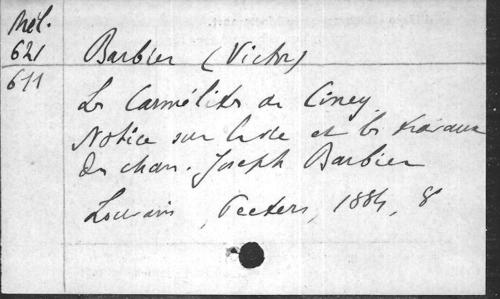 Mél.
621 Barbier (Victor)
611
Les Carmélites de Ciney.
Notice sur et les travaux
du chan. Joseph Barbier
Louvain, Peeters, 1884, 8